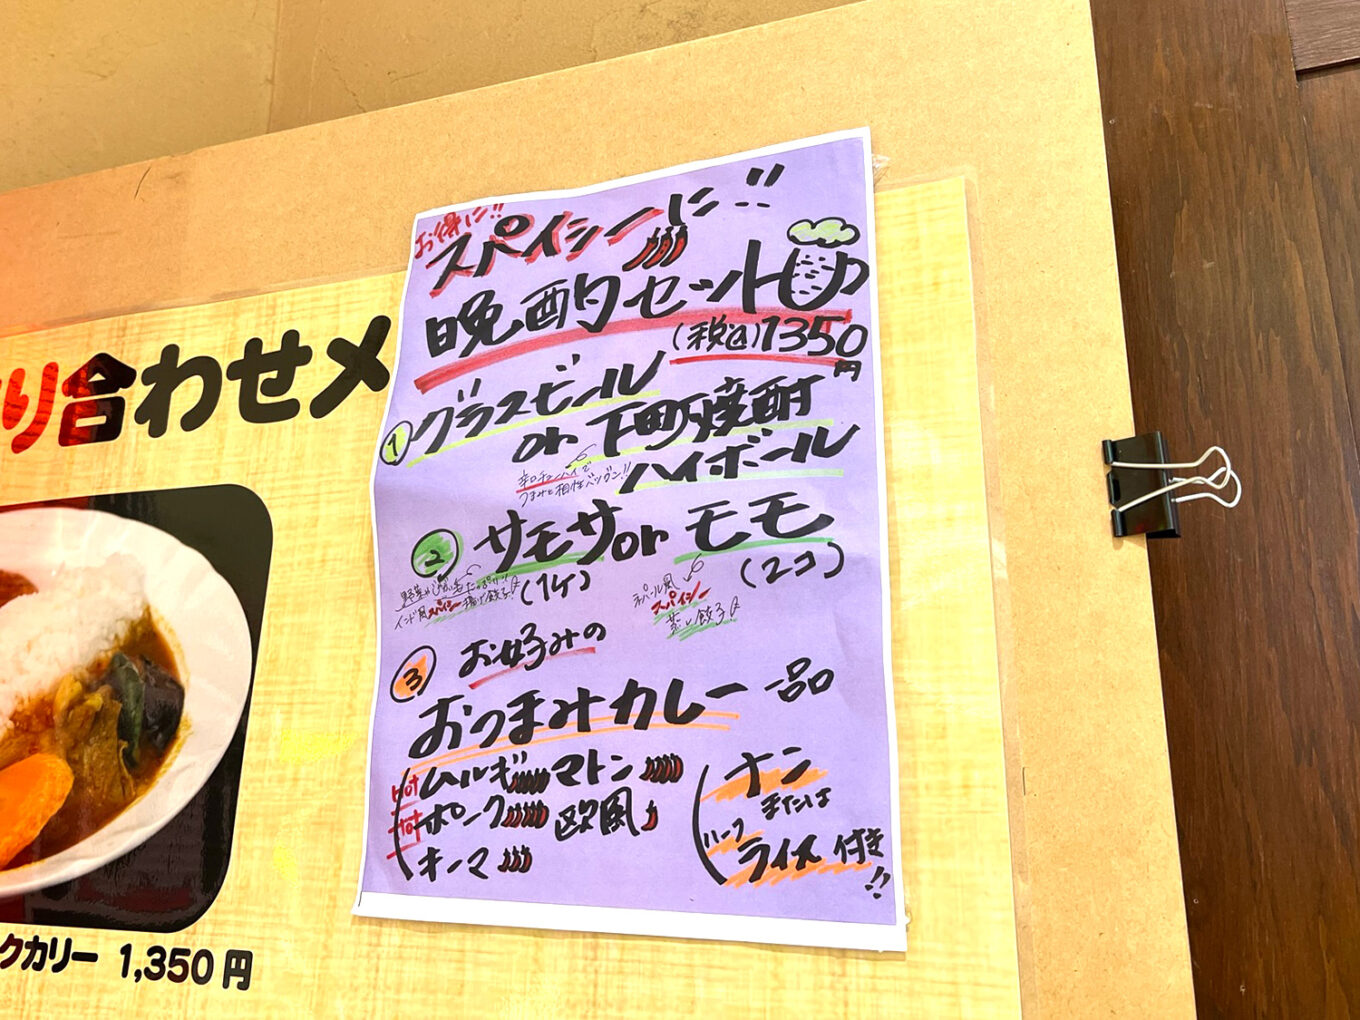 お得に!!
スパイシーに!!
晩酌セット
(税込)1350円
① グラスビール
or 下町焼酎
ハイボール
辛口チューハイで
つまみと相性バツグン!!
② サモサ or モモ
(1ケ)
(2コ)
インド風スパイシー揚げ餃子
ネパール風
スパイシー
蒸し餃子
③ お好みの
おつまみカレー一品
Hot ムルギ マトン
Hot ポーク 欧風
キーマ
ナン
または
ハーフ
ライス付き!!
り合わせメ
クカリー 1,350円